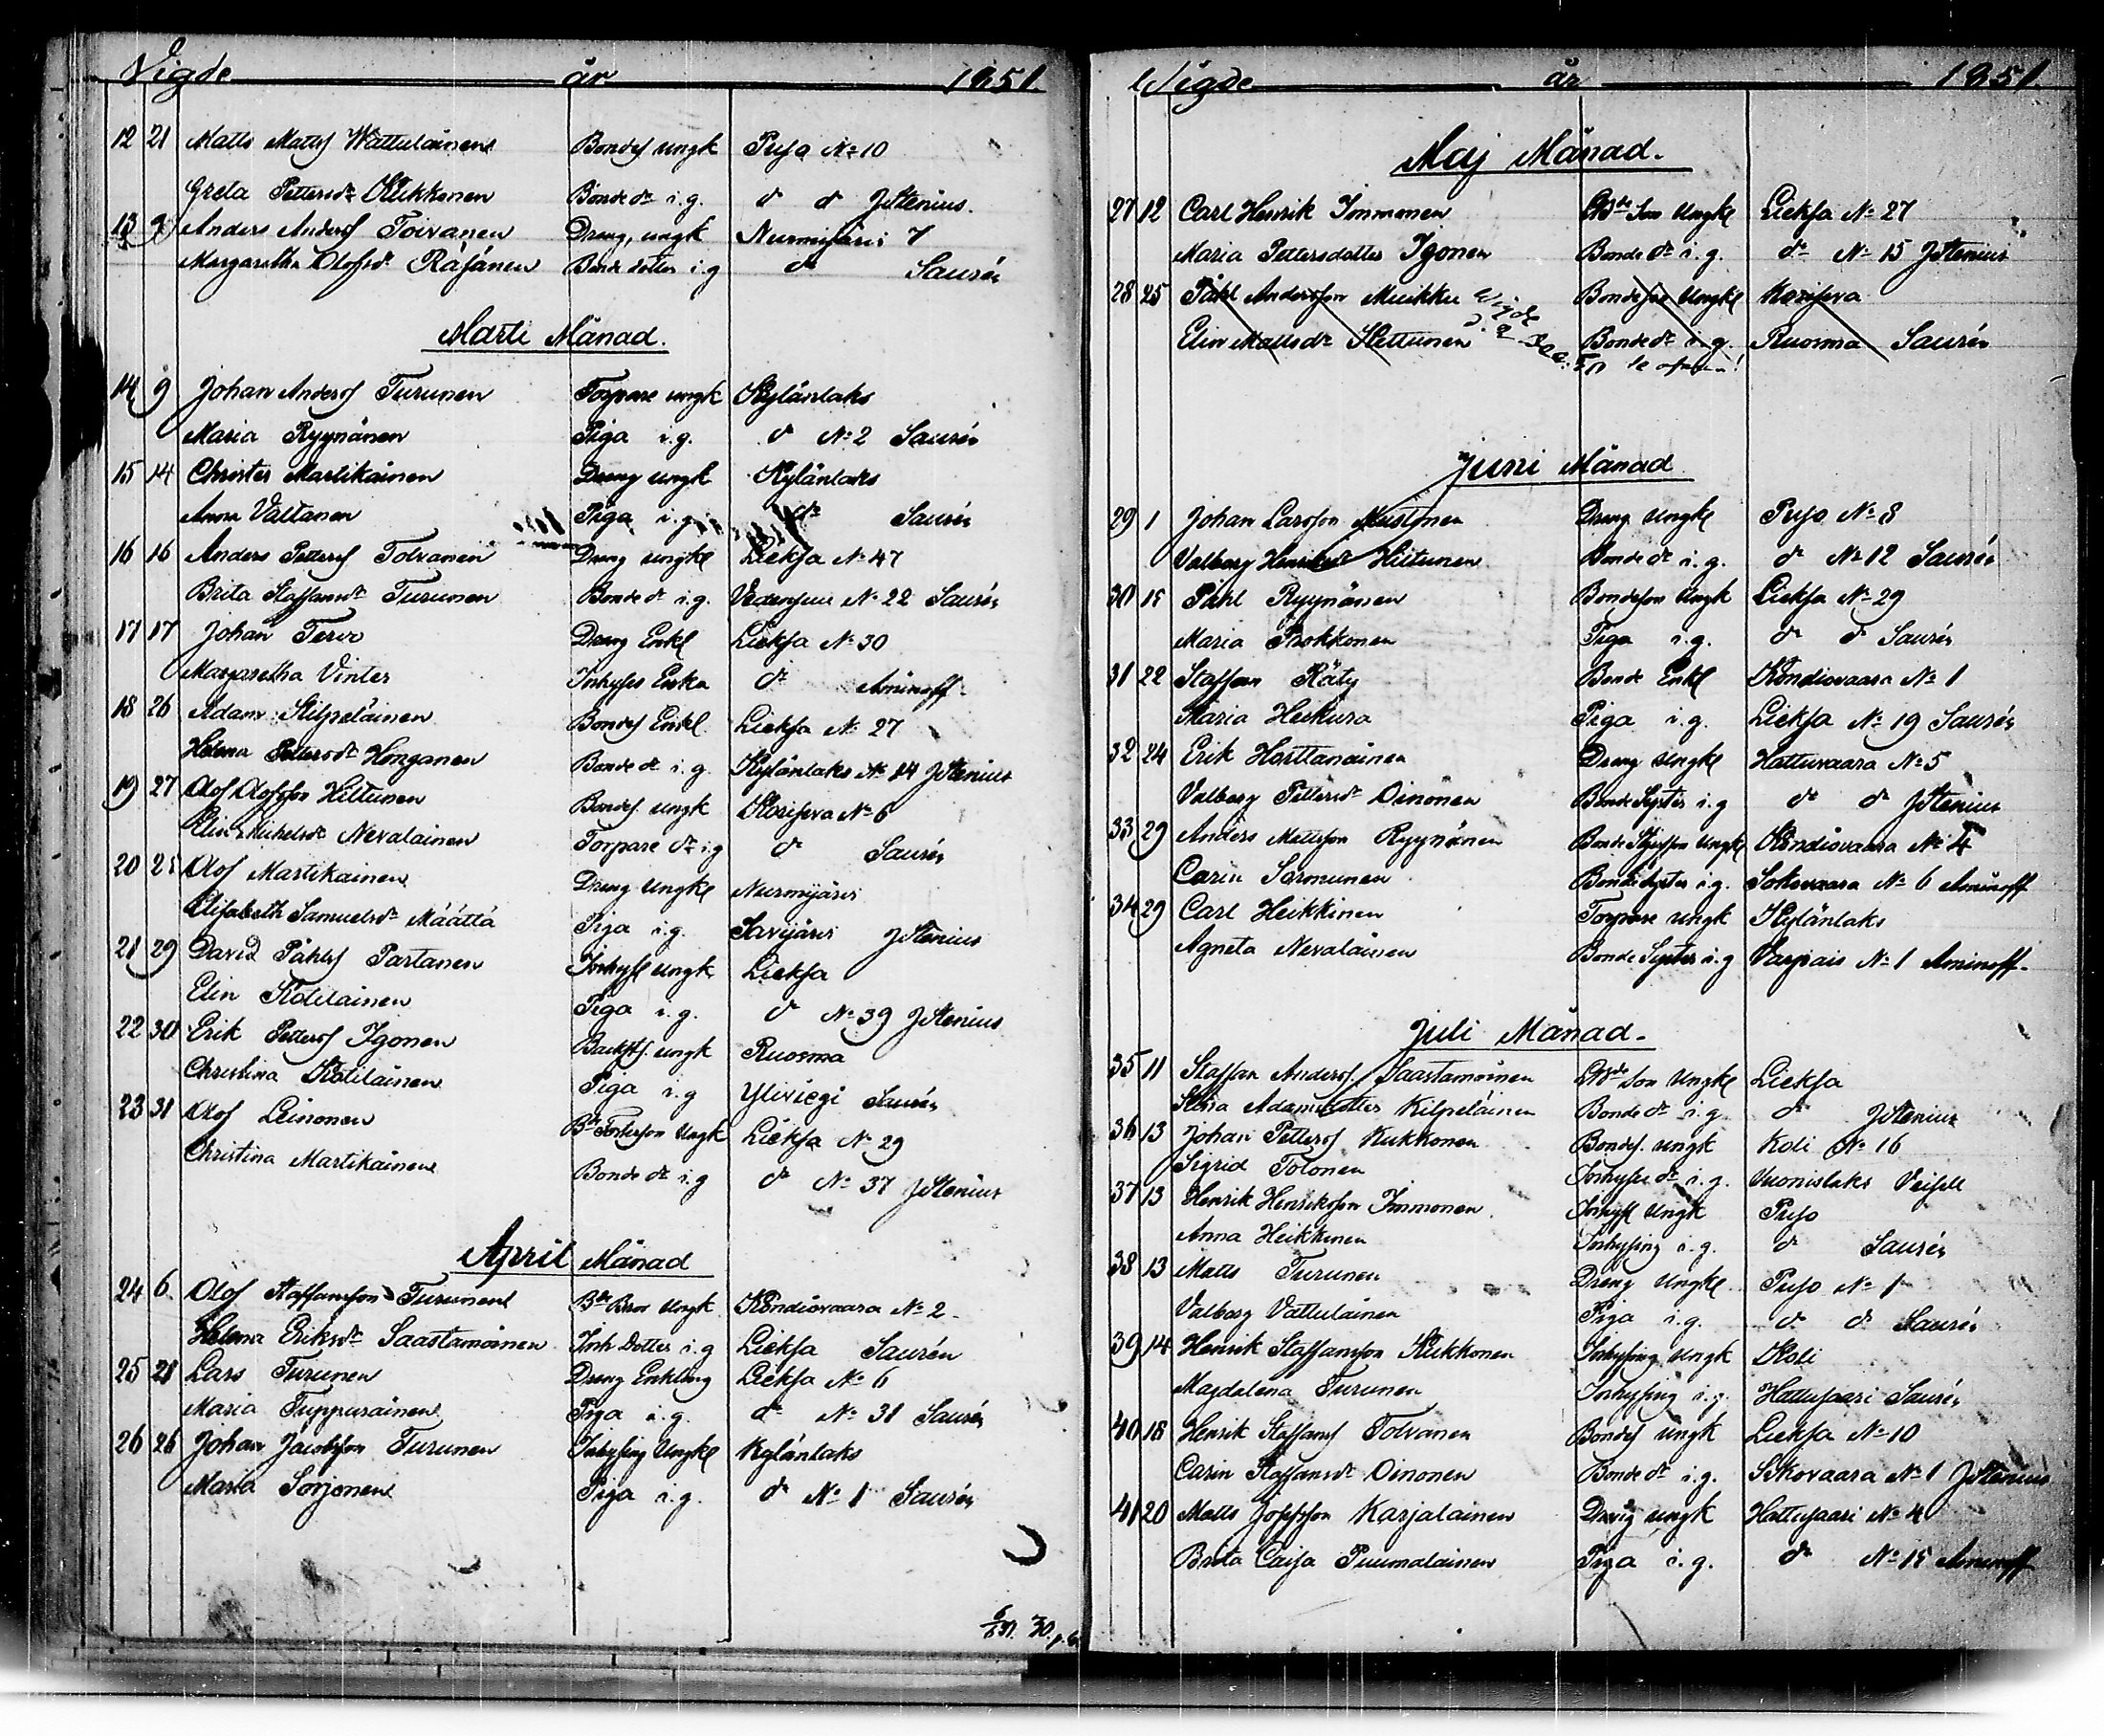 Vigde år 1851.
12 21 Matts Mattsf Wattulainen Bondef ungk Pujo No 10
Greta Pettersdr Kukkonen Bonde dr i.g. d d JStenius.
13 9 Anders Andersf Toivanen Dreng, ungk Nurmijärvi 7
Margaretha Olofsdr Räsänen Bonde dotter i.g dr Saurén
Marti Månad.
14 9 Johan Andersf Turunen Torpare ungk Kylänlaks
Maria Ryynänen Piga i.g. d No 2 Saurén
15 14 Christer Martikainen Dreng ungk Kylänlaks
Anna Valtanen Piga i.g. dr Saurén
16 16 Anders Pettersf Tolvanen Dreng ungkl Lieksa No 47
Brita Staffansdr Turunen Bonde dr i.g. No 22 Saurén
17 17 Johan Tervo Dreng Enkl Lieksa No 30
Margaretha Vinter Inhyses Enka dr Aminoff
18 26 Adam Kilpeläinen Bondef Enkl. Lieksa No 27
Helena Pettersdr Honganen Bonde dr i.g. Kylänlaks No 14 JStenius
19 27 Olof Olofsson Hiltunen Bondef. ungk Korisева No 6
Elin Michelsdr Nevalainen Torpare dr i.g dr Saurén
20 28 Olof Martikainen Dreng Ungkl Nurmijärvi
Elisabeth Samuelsdr Määttä Piga i.g. Savijärvi JStenius
21 29 David Påhlsf Partanen Inhysf ungk Lieksa
Elin Kotilainen Piga i.g. d No 39 JStenius
22 30 Erik Pettersf Igonen Backstf. ungk Ruosma
Christina Kotilainen Piga i.g Yliviegi Saurén
23 31 Olof Leinonen Bde Fosterson Ungk Lieksa No 29
Christina Martikainen Bonde dr i.g dr No 37 JStenius
April Månad
24 6. Olof Staffansson Turunen Bde Bror Ungk. Kondiovaara No 2.
Helena Eriksdr Saastamoinen Inh Dotter i.g Lieksa Saurén
25 21 Lars Turunen Dreng Enkling Lieksa No 6
Maria Tuppurainen Piga i.g. dr No 31 Saurén
26 26 Johan Jacobsson Turunen Inhysing Ungkl Kylänlaks
Maria Sorjonen Piga i.g. d No 1 Saurén
30
Vigde år 1851.
Maj Månad.
27 12 Carl Henrik Immonen Bde Son Ungkl Lieksa No 27
Maria Pettersdotter Igonen Bonde dr i.g. dr No 15 JStenius
28 25 Påhl Andersson Muikku Bondeson Ungkl Koriseva
Elin Mattsdr Kettunen Bonde dr i.g. Ruosma Saurén
Juni Månad
29 1 Johan Larsson Mustonen Dreng Ungkl Pujo No 8
Valborg Henriksdr Hiltunen Bonde dr i.g. d No 12 Saurén
30 15 Påhl Ryynänen Bondeson Ungk Lieksa No 29
Maria Prokkonen Piga i.g. d d Saurén
31 22 Staffan Räty Bonde Enkl Kondiovaara No 1
Maria Heikura Piga i.g. Lieksa No 19 Saurén
32 24 Erik Horttanainen Dreng Ungkl Hattuvaara No 5
Valborg Pettersdr Oinonen Bonde Syster i.g d d JStenius
33 29 Anders Mattsson Ryynänen Bonde Styfson Ungkl Kondiovaara No 4
Carin Sormunen Bonde Syster i.g. Sokovaara No 6 Aminoff
34 29 Carl Heikkinen Torpare ungk Kylänlaks
Agneta Nevalainen Bonde Syster i.g Varpais No 1 Aminoff.
Juli Månad.
35 11 Staffan Andersf. Saastamoinen Son Ungkl Lieksa
Adamsdotter Kilpeläinen Bonde dr i.g. dr JStenius
36 13 Johan Pettersf Kukkonen Bondef. ungk Koli No 16
Sigrid Tolonen Inhyses dr i.g. Vuonislaks
37 13 Henrik Henriksson Immonen Inhysf Ungk Pujo
Anna Heikkinen Inhysing i.g. d Saurén
38 13 Matts Turunen Dreng Ungkl Pujo No 1
Valborg Vattulainen Piga i.g. d d Saurén
39 14 Henrik Staffansson Kukkonen Inhysing Ungk Koli
Magdalena Turunen Inhysing i.g. Hattusaari Saurén
40 18 Henrik Staffansf Tolvanen Bondef ungk Lieksa No 10
Carin Staffansdr Oinonen Bonde dr i.g. Sokovaara No 1 JStenius
41 20 Matts Josefsson Karjalainen Dreng ungk Hattusaari No 4
Brita Caisa Puumalainen Piga i.g. d No 15 Aminoff